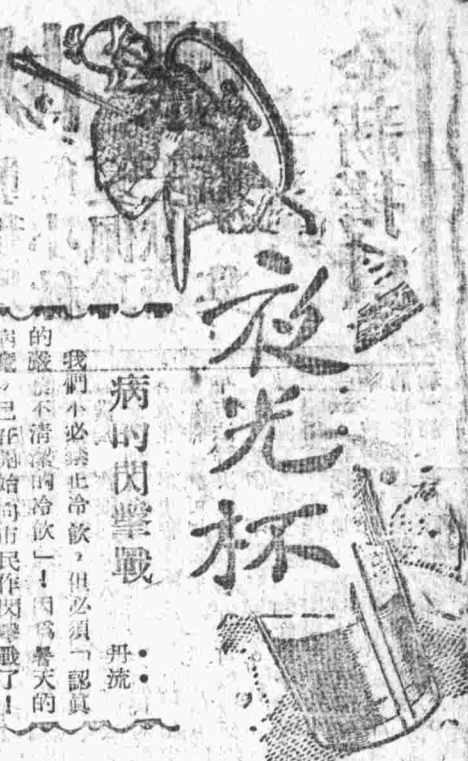 夜光杯
病的閃擊戰
丹流
我們不必禁止冷飲,但必須「認眞
的嚴禁不清潔的冷飲」!因爲暑天的
病魔,已在開始向市民作閃擊戰了!